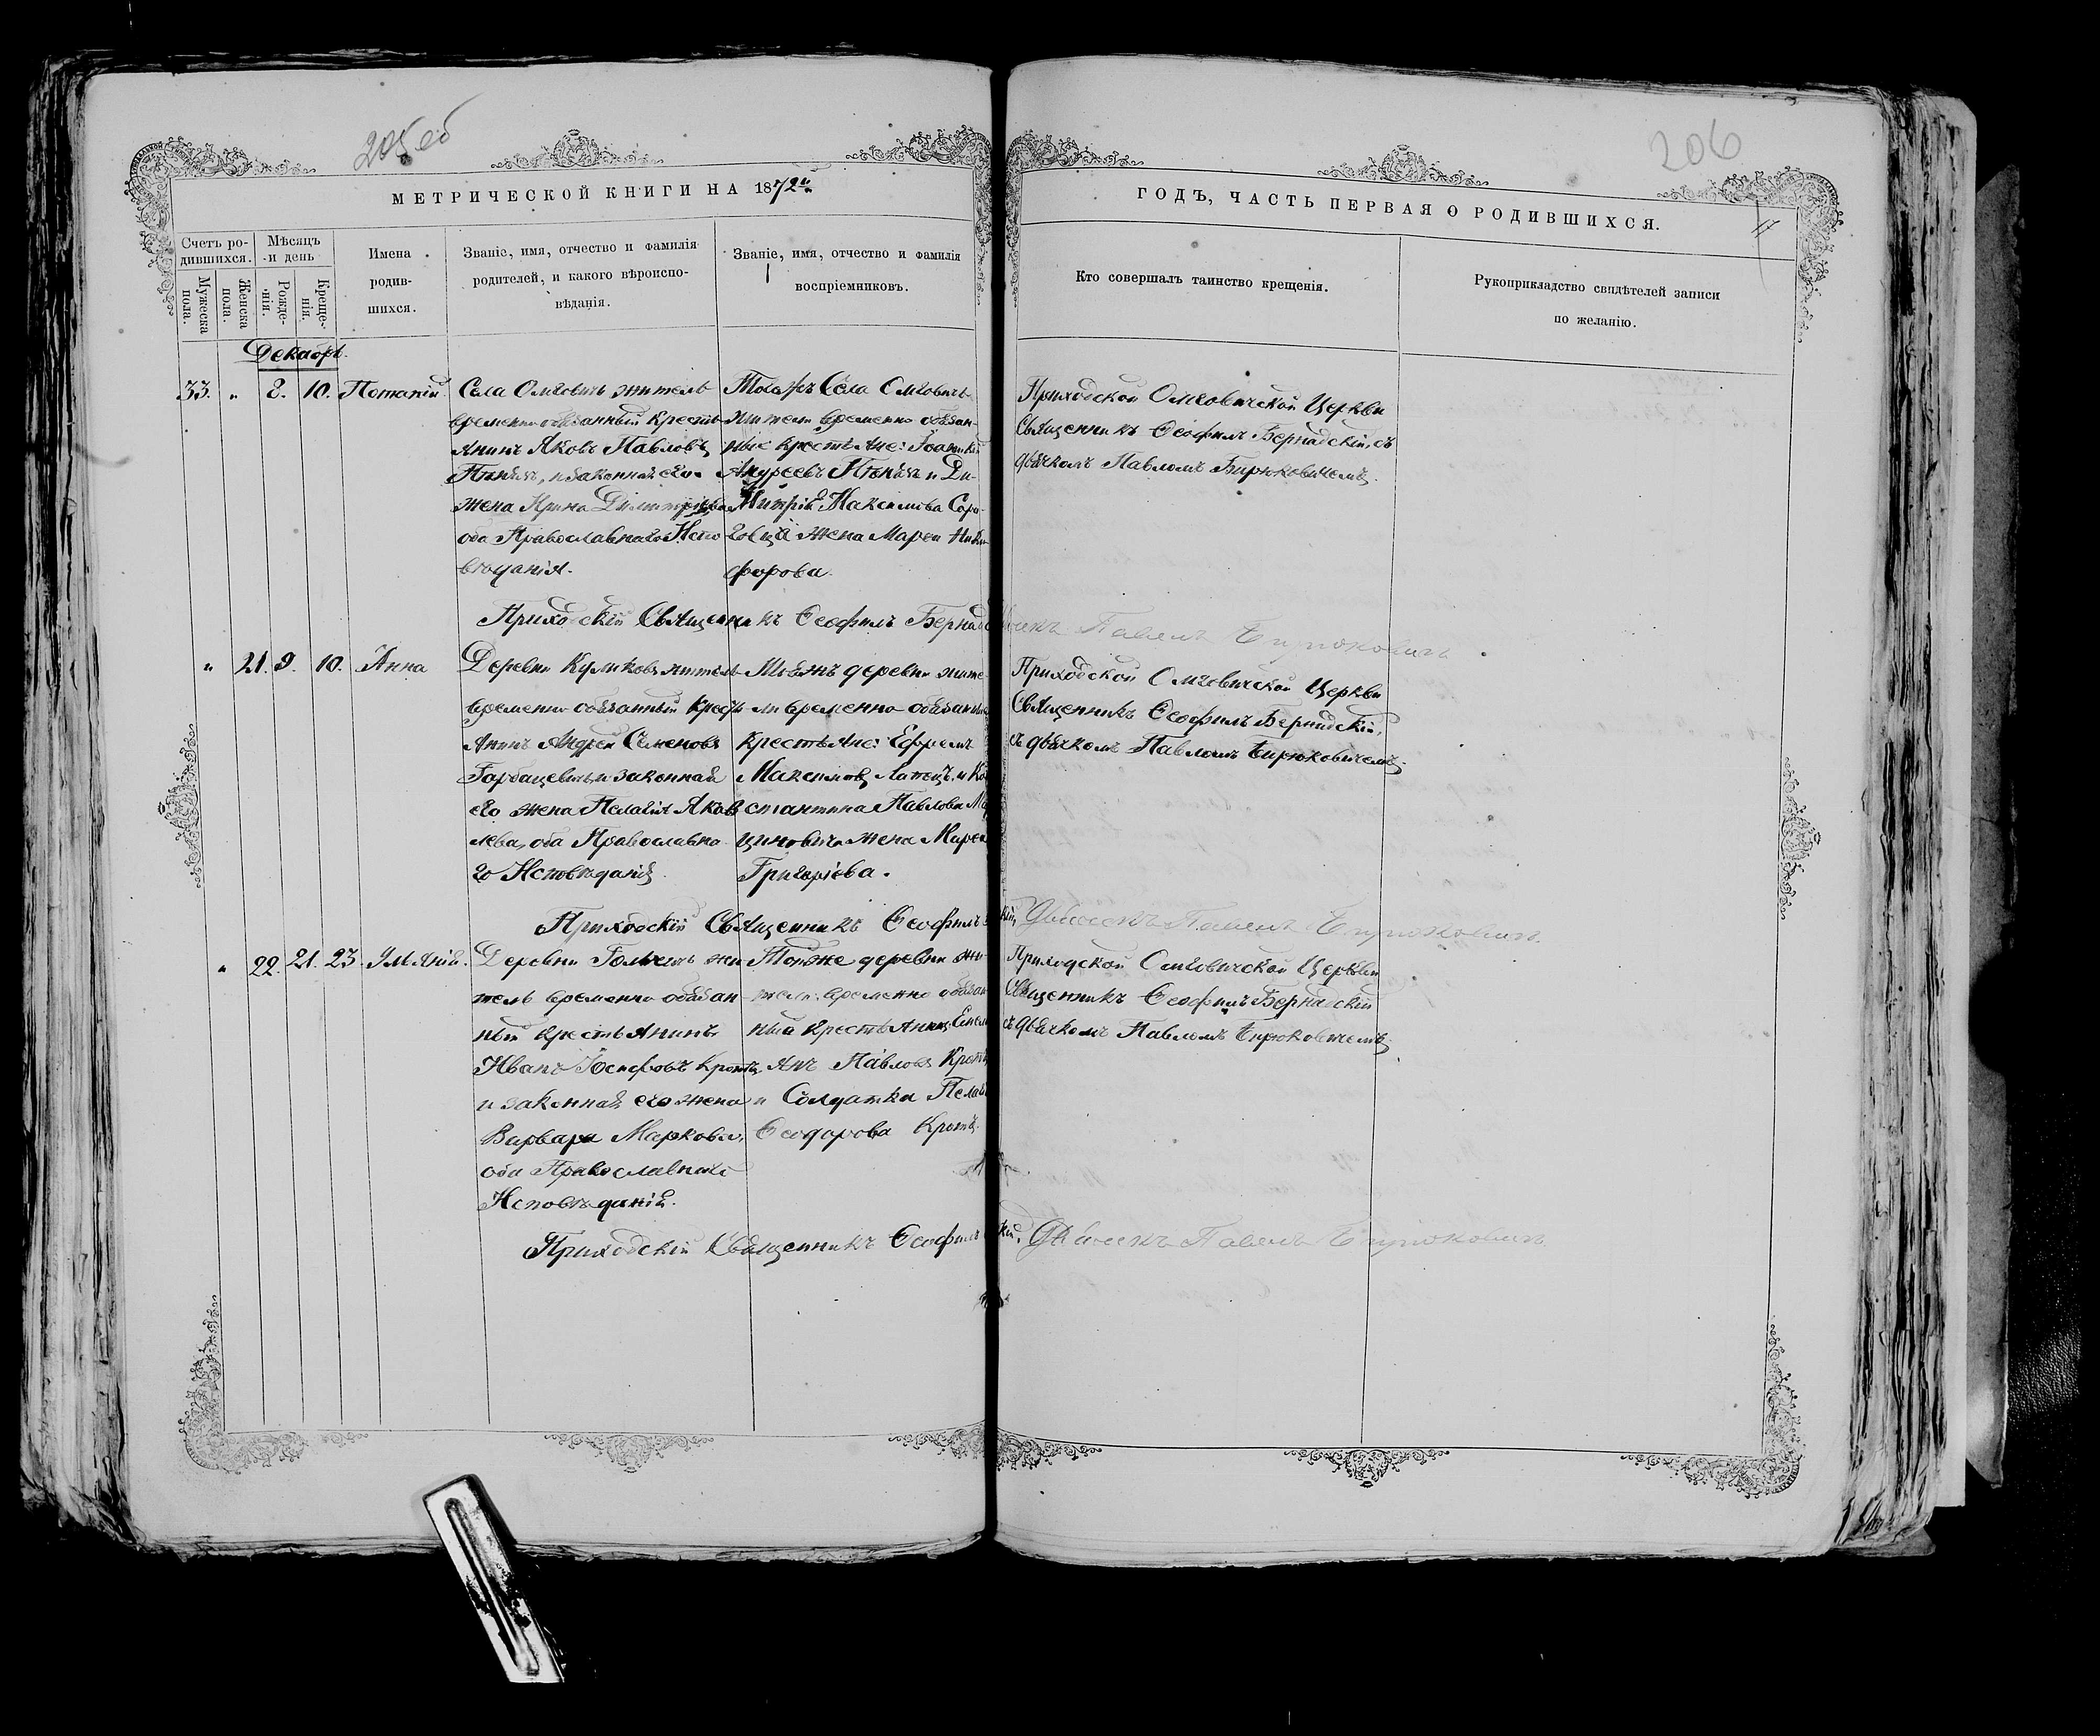 205 об
206
МЕТРИЧЕСКОЙ КНИГИ НА 1872й
ГОДЪ, ЧАСТЬ ПЕРВАЯ О РОДИВШИХСЯ.
Счетъ ро-
дившихся.
Мужеска
пола.
Женска
пола.
Мѣсяцъ
и день
Рожде-
нія.
Креще-
нія.
Имена
родив-
шихся.
Званіе, имя, отчество и фамилія
родителей, и какого вѣроиспо-
вѣданія.
Званіе, имя, отчество и фамилія
воспріемниковъ.
Кто совершалъ таинство крещенія.
Рукоприкладство свидѣтелей записи
по желанію.
Декабрь.
33. " 8. 10. Потапій
Села Омговичъ житель
временно обязанный кресть-
янинъ Яковъ Павловъ
и законная его
жена Ирина Димитріева
оба Православнаго Испо-
вѣданія.
Тогожъ Села Омговичъ
жители временно обязан-
ные крестьяне: Іоанникій
Андреевъ и Ди-
митрія Максимова
жена Марѳа Ники-
форова.
Приходской Омговичской Церкви
Священникъ Ѳеофилъ Бернадскій, съ
дьячкомъ Павломъ Бирюковичемъ.
Приходскій Священникъ Ѳеофилъ Бернад
Павелъ Бирюковичъ
" 21. 9. 10. Анна
Деревни Куликовъ житель
временно обязанный кресть-
янинъ Андрей Семеновъ
Горбацевичъ и законная
его жена Пелагія Яков-
лева, оба Православна-
го Исповѣданія.
Тоежъ деревни жите-
ли временно обязанные
крестьяне: Ефремъ
Максимовъ Лапецъ и Ко
стантина Павлова
жена Марѳа
Григоріева.
Приходской Омговичской Церкви
Священникъ Ѳеофилъ Бернадскій,
съ дьячкомъ Павломъ Бирюковичемъ.
Приходскій Священникъ Ѳеофилъ
Дьячекъ Павелъ Бирюковичъ.
" 22. 21. 23. Іуліанія.
Деревни жи-
тель временно обязан-
ный крестьянинъ
Иванъ Іосифовъ Кротъ
и законная его жена
Варвара Маркова,
оба Православнаго
Исповѣданія.
Тойже деревни жи-
тели: временно обязан-
ный крестьянинъ Емель
янъ Павловъ Кротъ
и Солдатка Пелагія
Ѳеодорова Кротъ.
Приходской Омговичской Церкви
Священникъ Ѳеофилъ Бернадскій
съ дьячкомъ Павломъ Бирюковичемъ.
Приходскій Священникъ Ѳеофилъ
Дьячекъ Павелъ Бирюковичъ